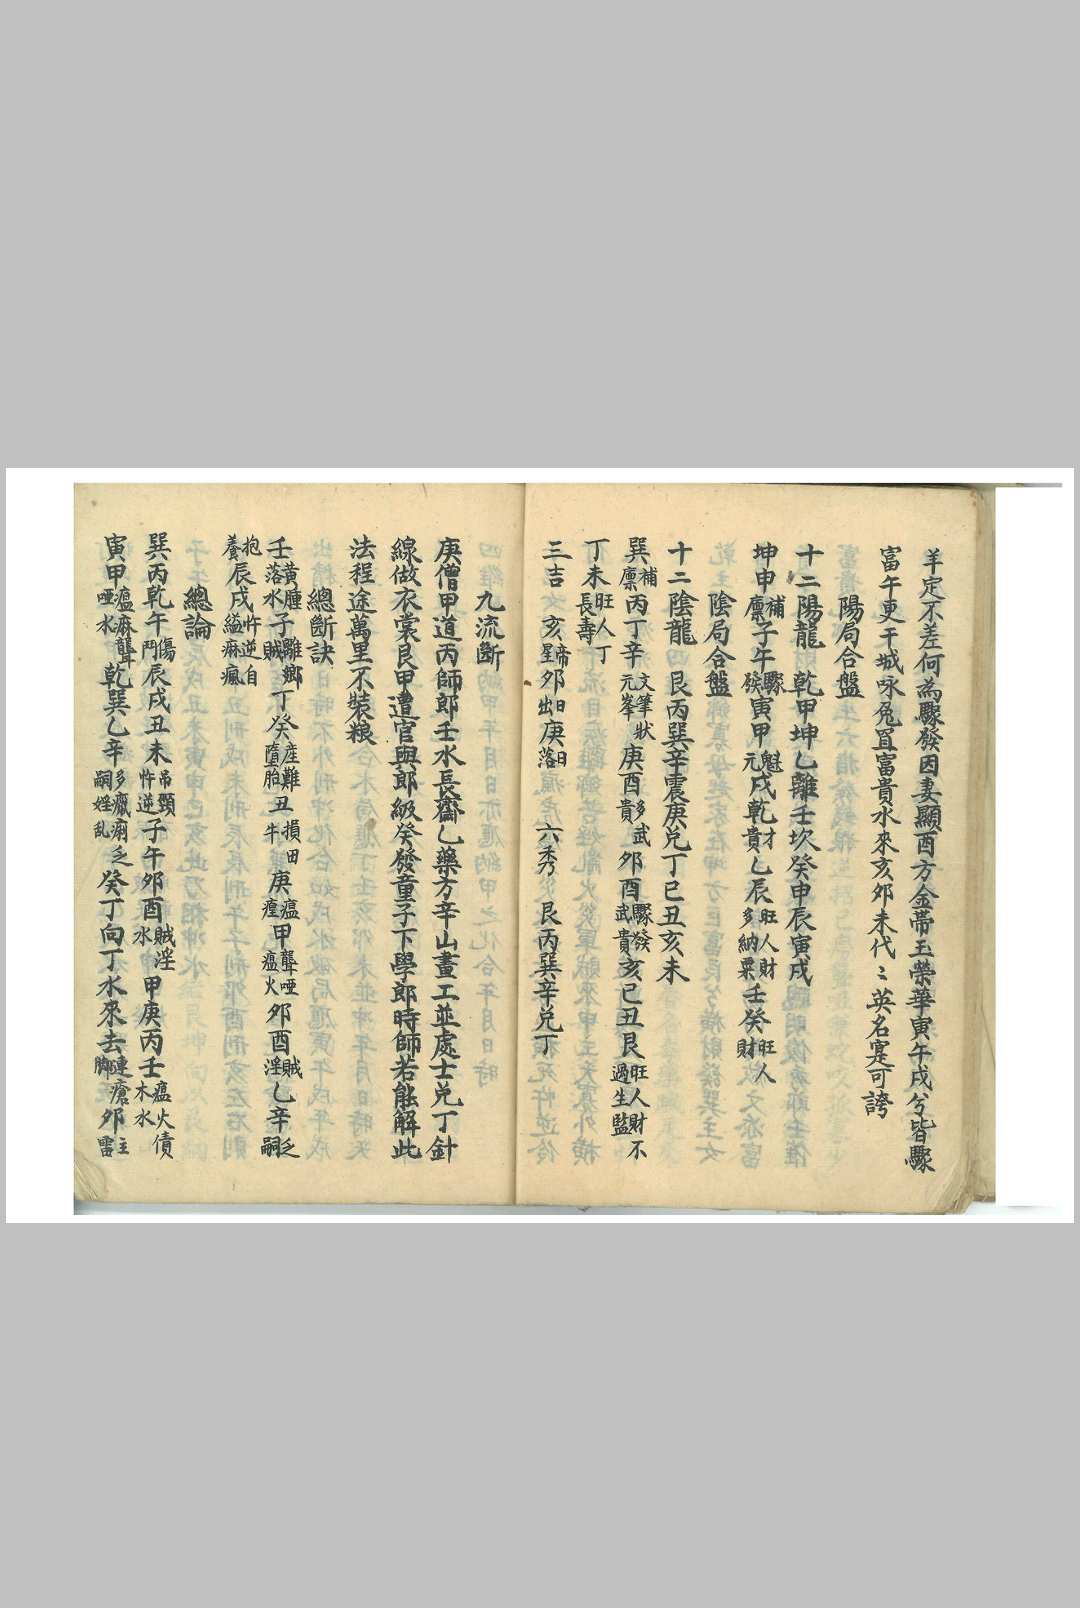 羊定不差何為驟發因妻顯酉方金帶玉榮華寅午戌兮皆驟
富午更干城咏兔罝富貴水來亥夘未代〻英名寔可誇
陽局合盤
十二陽龍 乾甲坤乙離壬坎癸申辰寅戌
坤申補廪子午驟發寅甲魁元戌乾才貴乙辰旺人財多納粟壬癸旺人財
陰局合盤
十二陰龍 艮丙巽辛震庚兑丁巳丑亥未
巽補廪丙丁辛文筆狀元峯庚酉多武貴夘酉驟發武貴亥巳丑艮旺人財不過生監
丁未旺人丁長壽
三吉 亥帝星夘日出庚日落 六秀 艮丙巽辛兑丁
九流斷
庚僧甲道丙師郎壬水長齋乙藥方辛山畫工並處士兑丁針
線做衣裳艮甲遭官與郎級癸發童子下學郎時師若能解此
法程途萬里不裝粮
總斷訣
壬黃腫落水子離鄉賊丁癸產難墮胎丑損田牛庚瘟瘽甲聾啞瘟火夘酉賊淫乙辛乏嗣
抱養辰戌忤逆自縊麻瘋
總論
巽丙乾午傷鬥辰戌丑未吊頸忤逆子午夘酉賊淫水甲庚丙壬瘟火債木水
寅甲瘟麻聾啞水乾巽乙辛多癲痢乏嗣婬乱癸丁向丁水來去連瘡脚夘主雷